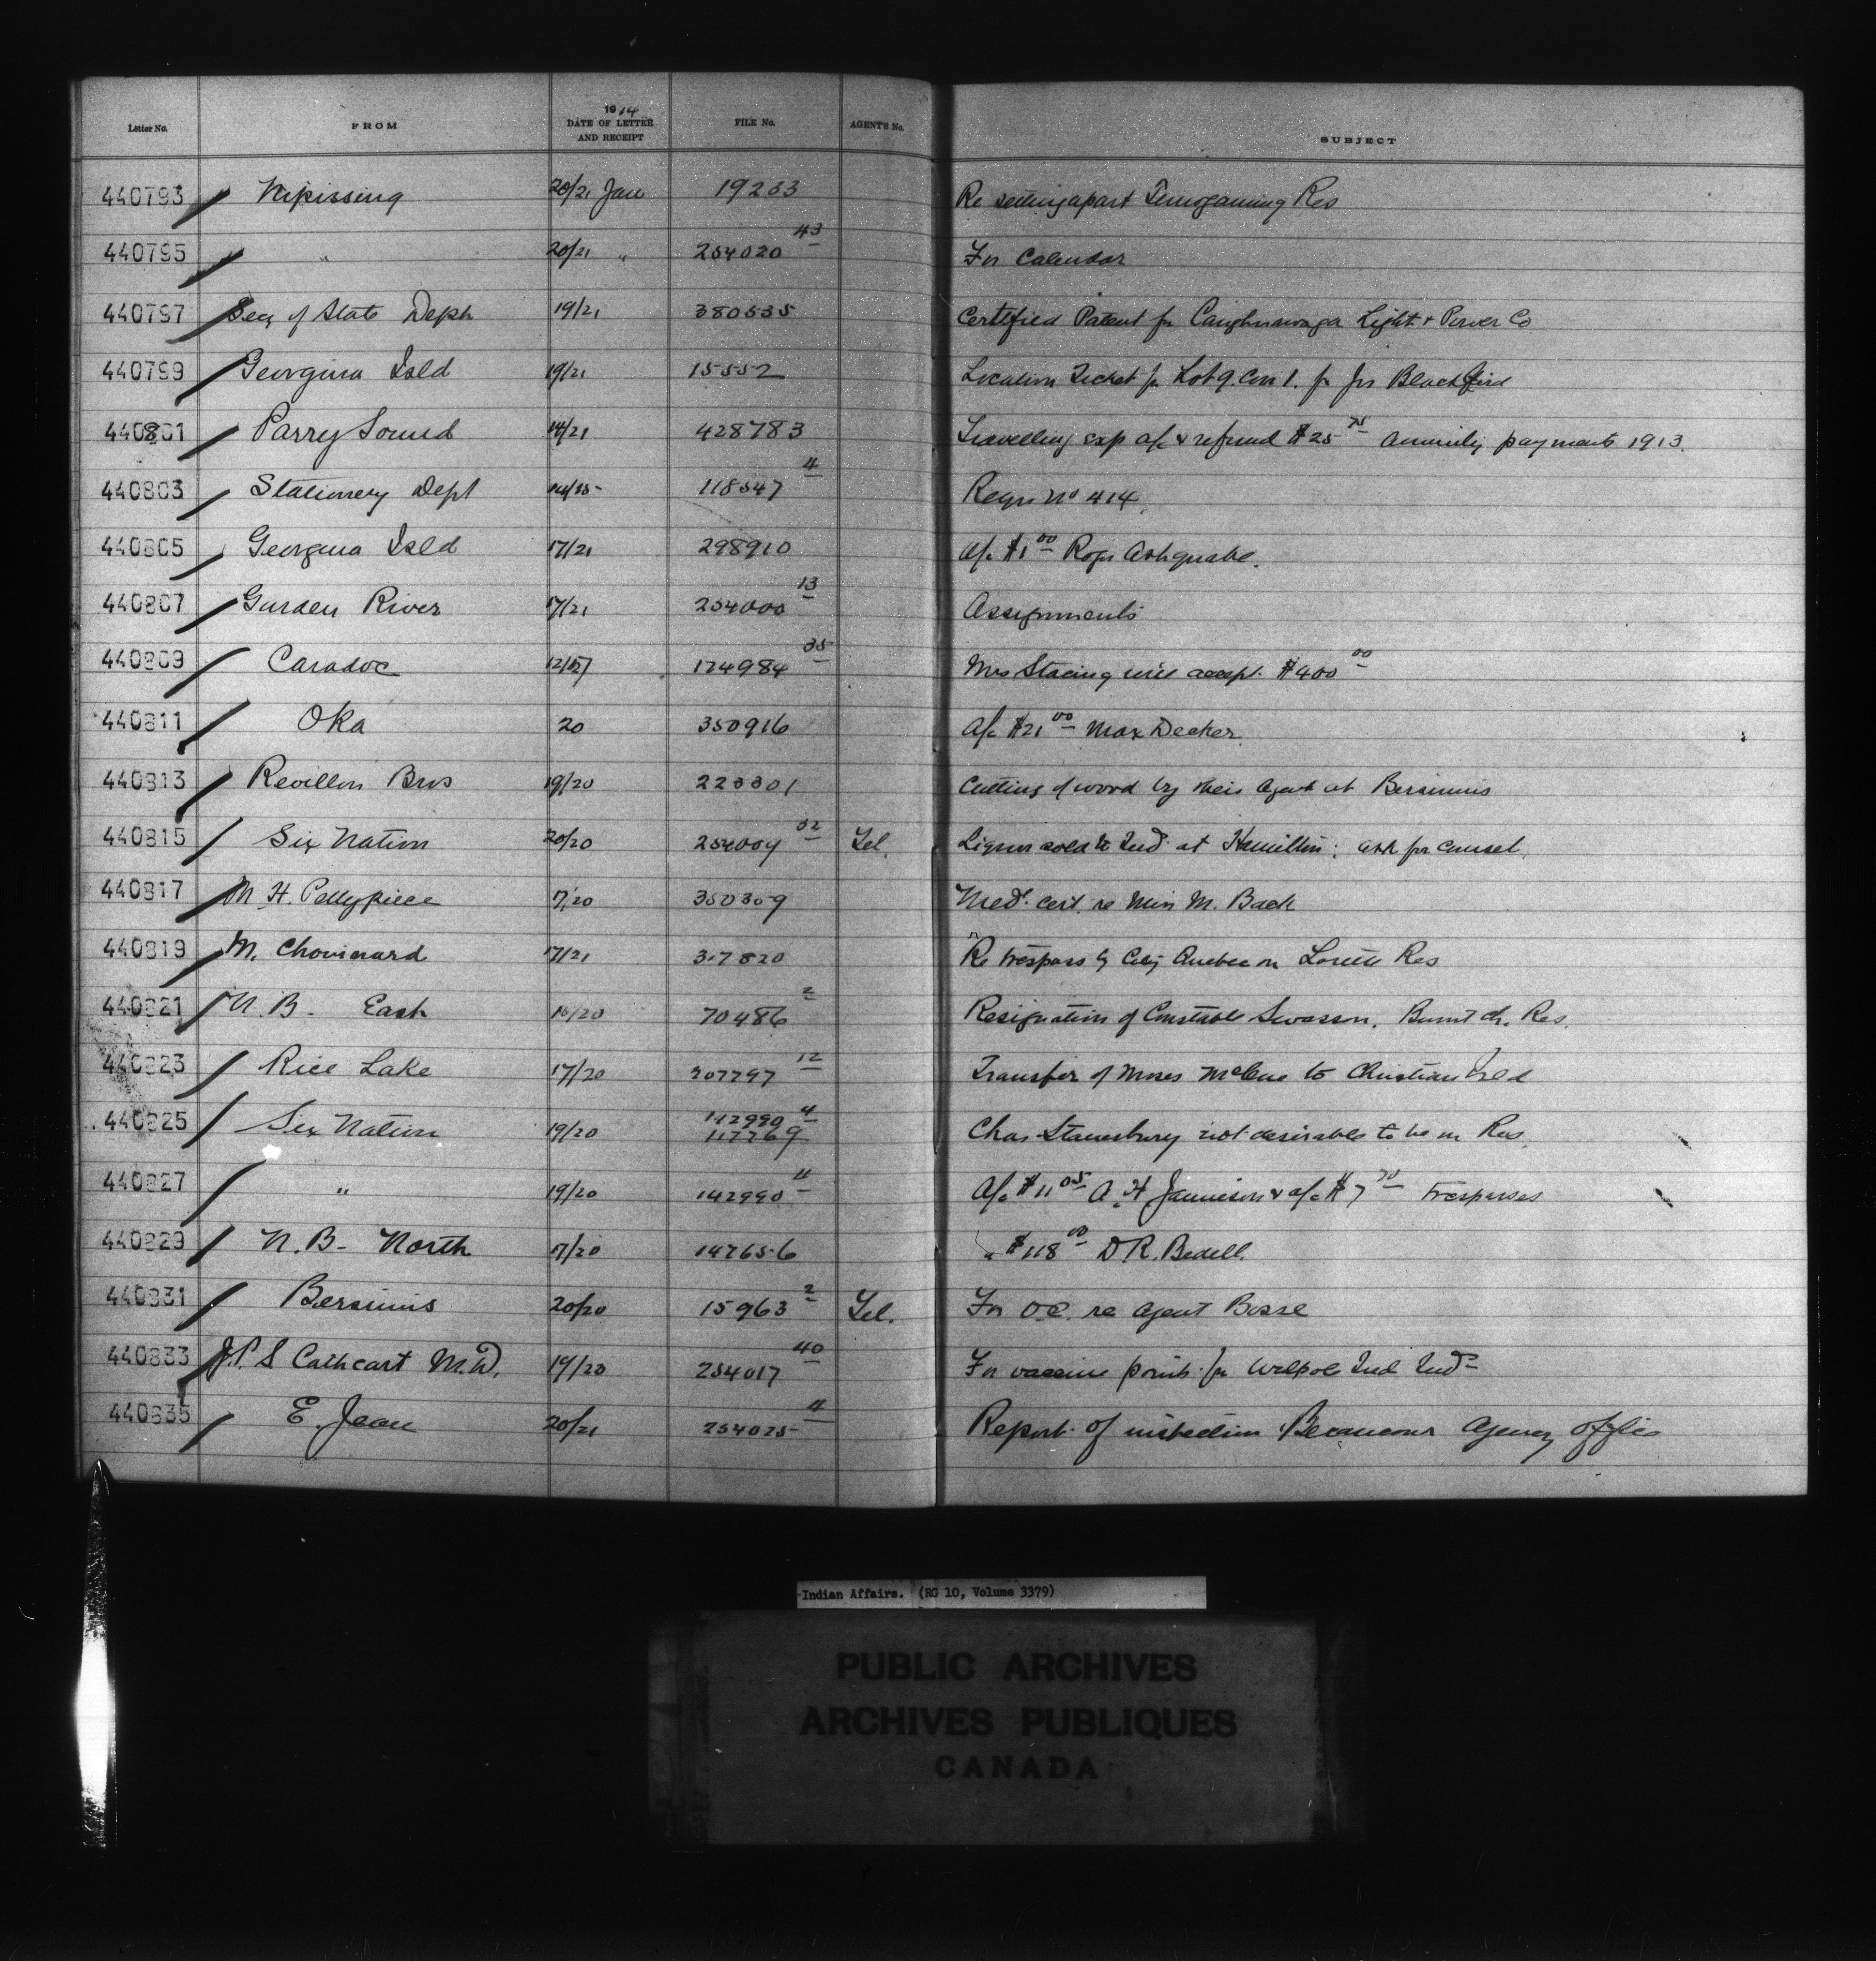 Letter No. FROM 1914 DATE OF LETTER AND RECEIPT FILE No. AGENT'S No. SUBJECT
440793 Nipissing 20/21 Jan 19233 Re setting apart Temogaming Res
440795 " 20/21 " 254020 43 For Calendar
440797 Secy of State Dept 19/21 380535 Certified Patent for Caughnawaga Light & Power Co
440799 Georgina Isld 19/21 15552 Location Ticket for Lot 9. Con 1. for Jas Blackbird
440801 Parry Sound 14/21 428783 Travelling exp a/c & refund $25 75 annuity payments 1913.
440803 Stationery Dept 14/15 118547 4 Reqn No 414.
440805 Georgina Isld 17/21 298910 a/c $1 00 Roger Ashquabe.
440807 Garden River 17/21 254000 13 Assignments
440809 Caradoc 12/ 174984 35 Mrs will accept $400 00
440811 Oka 20 350916 A/c $21 00 Max Decker
440813 Revillon Bros 19/20 223301 Cutting of wood by their agent at Bersimis
440815 Six Nation 20/20 254009 32 Tel. Liquor sold to Ind at Hamilton: ask for counsel.
440817 M H. Pettypiece 17/20 350309 Med. cert. re Miss M. Back
440819 M. Chouinard 17/21 317820 Re trespass by City Quebec on Lorette Res
440821 N. B. East 16/20 70486 2 Resignation of Constable Swasson, Burnt Ch. Res.
440823 Rice Lake 17/20 207797 12 Transfer of Moses McCue to Christian Isld
440825 Six Nation 19/20 142990 4 117769 Chas Stanesbury not desirable to be on Res.
440827 " 19/20 142990 4 A/c $11 05 A. H Jamieson & a/c $7 70 trespasses
440829 N. B. North 17/20 147656 " $118 00 D R. Bedell.
440831 Bersimis 20/20 15963 2 Tel. For O.C. re agent Bosse
440833 J.P. S Cathcart M.D. 19/20 254017 40 For vaccine points for Walpole Isd Ind
440835 E. Jean 20/21 254025 4 Report of inspection Becancour Agency office
Indian Affairs. (RG 10, Volume 3379)
PUBLIC ARCHIVES
ARCHIVES PUBLIQUES
CANADA